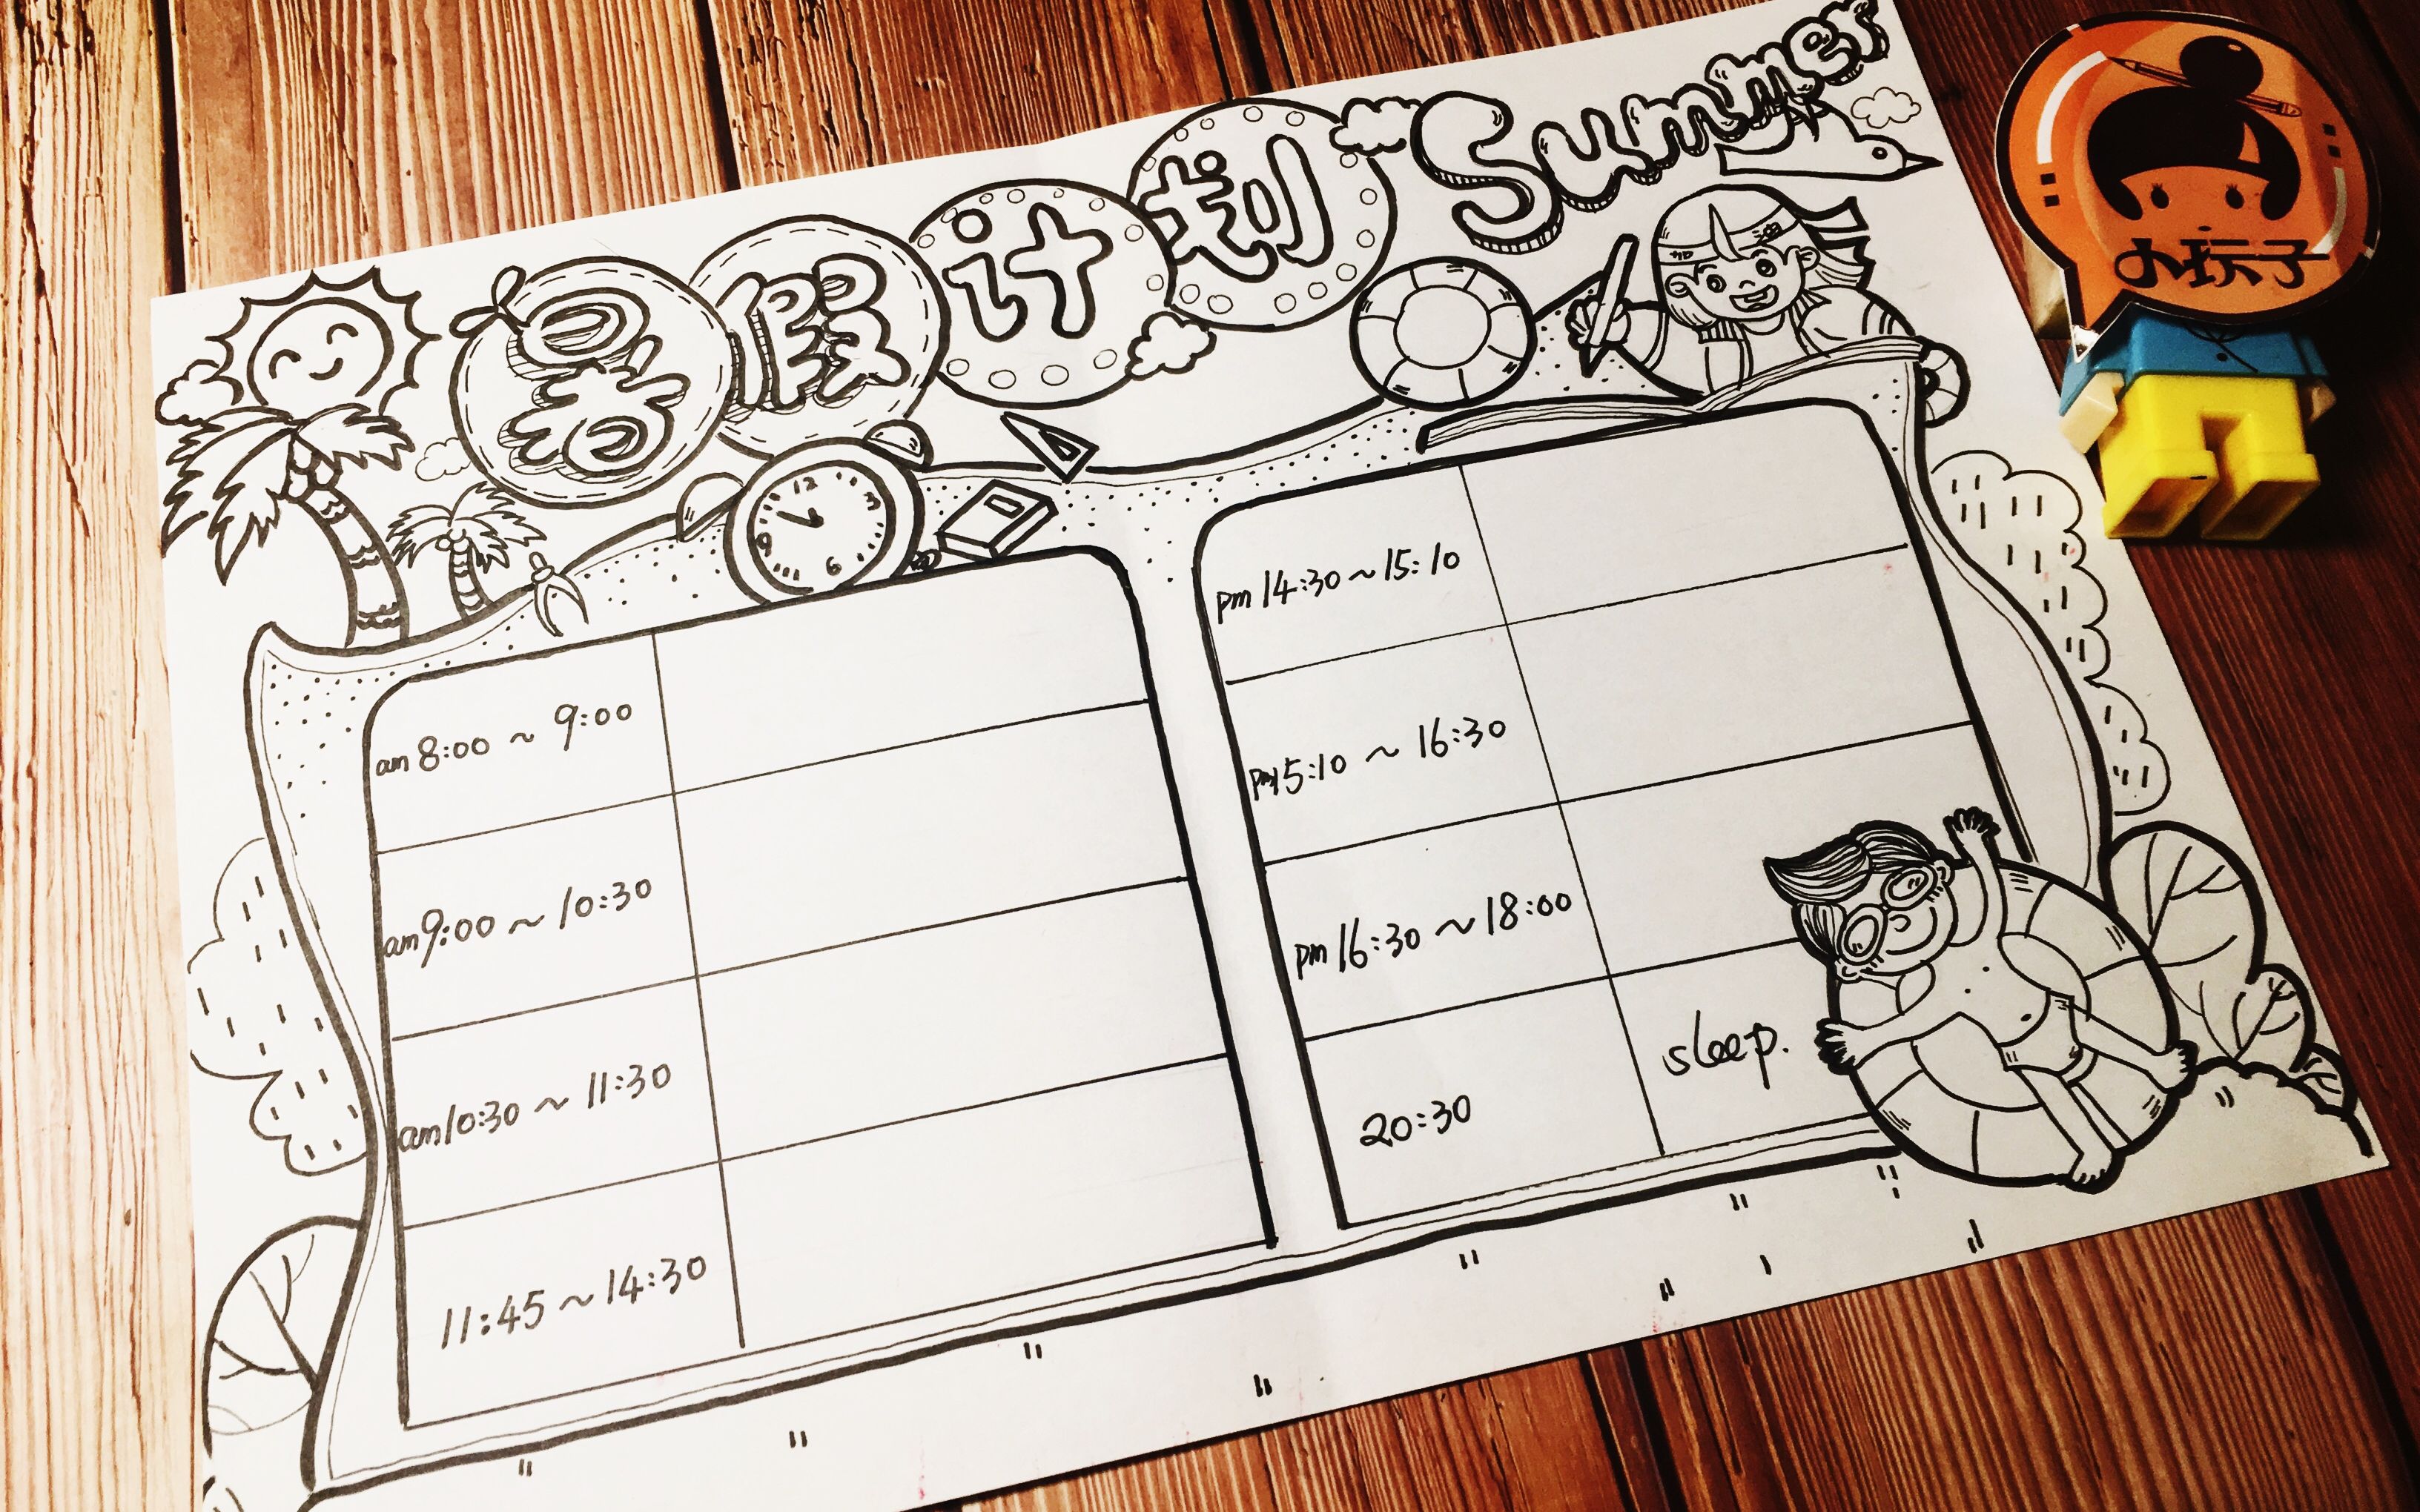 暑假计划 Summer
小玩子
12
3
6
9
am 8:00 ~ 9:00
am 9:00 ~ 10:30
am 10:30 ~ 11:30
11:45 ~ 14:30
pm 14:30 ~ 15:10
pm 15:10 ~ 16:30
pm 16:30 ~ 18:00
20:30 sleep.